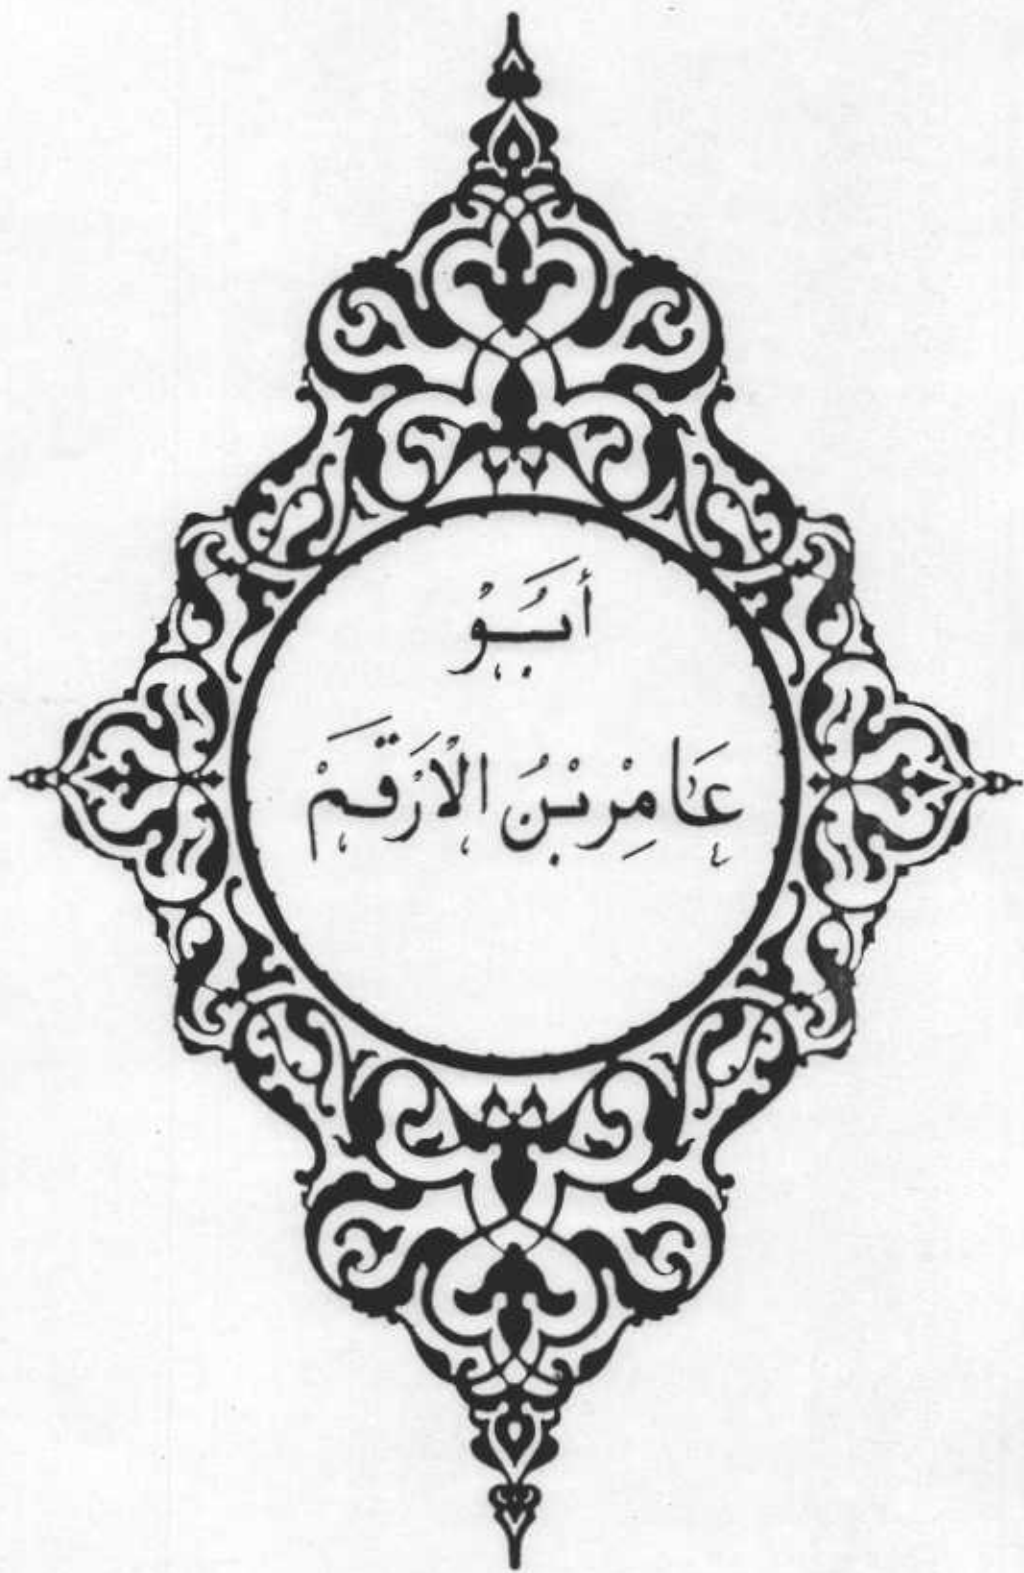 أَبُوْ
عَامِرْ بْنُ الْأَرْقَمْ